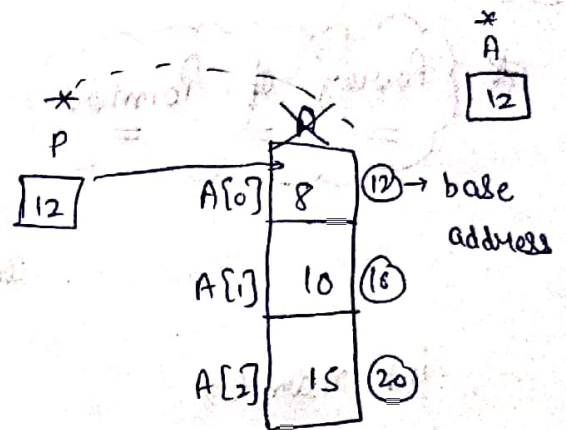 *
A
12
*
P
12
A[0] 8 12 → base
address
A[1] 10 16
A[2] 15 20